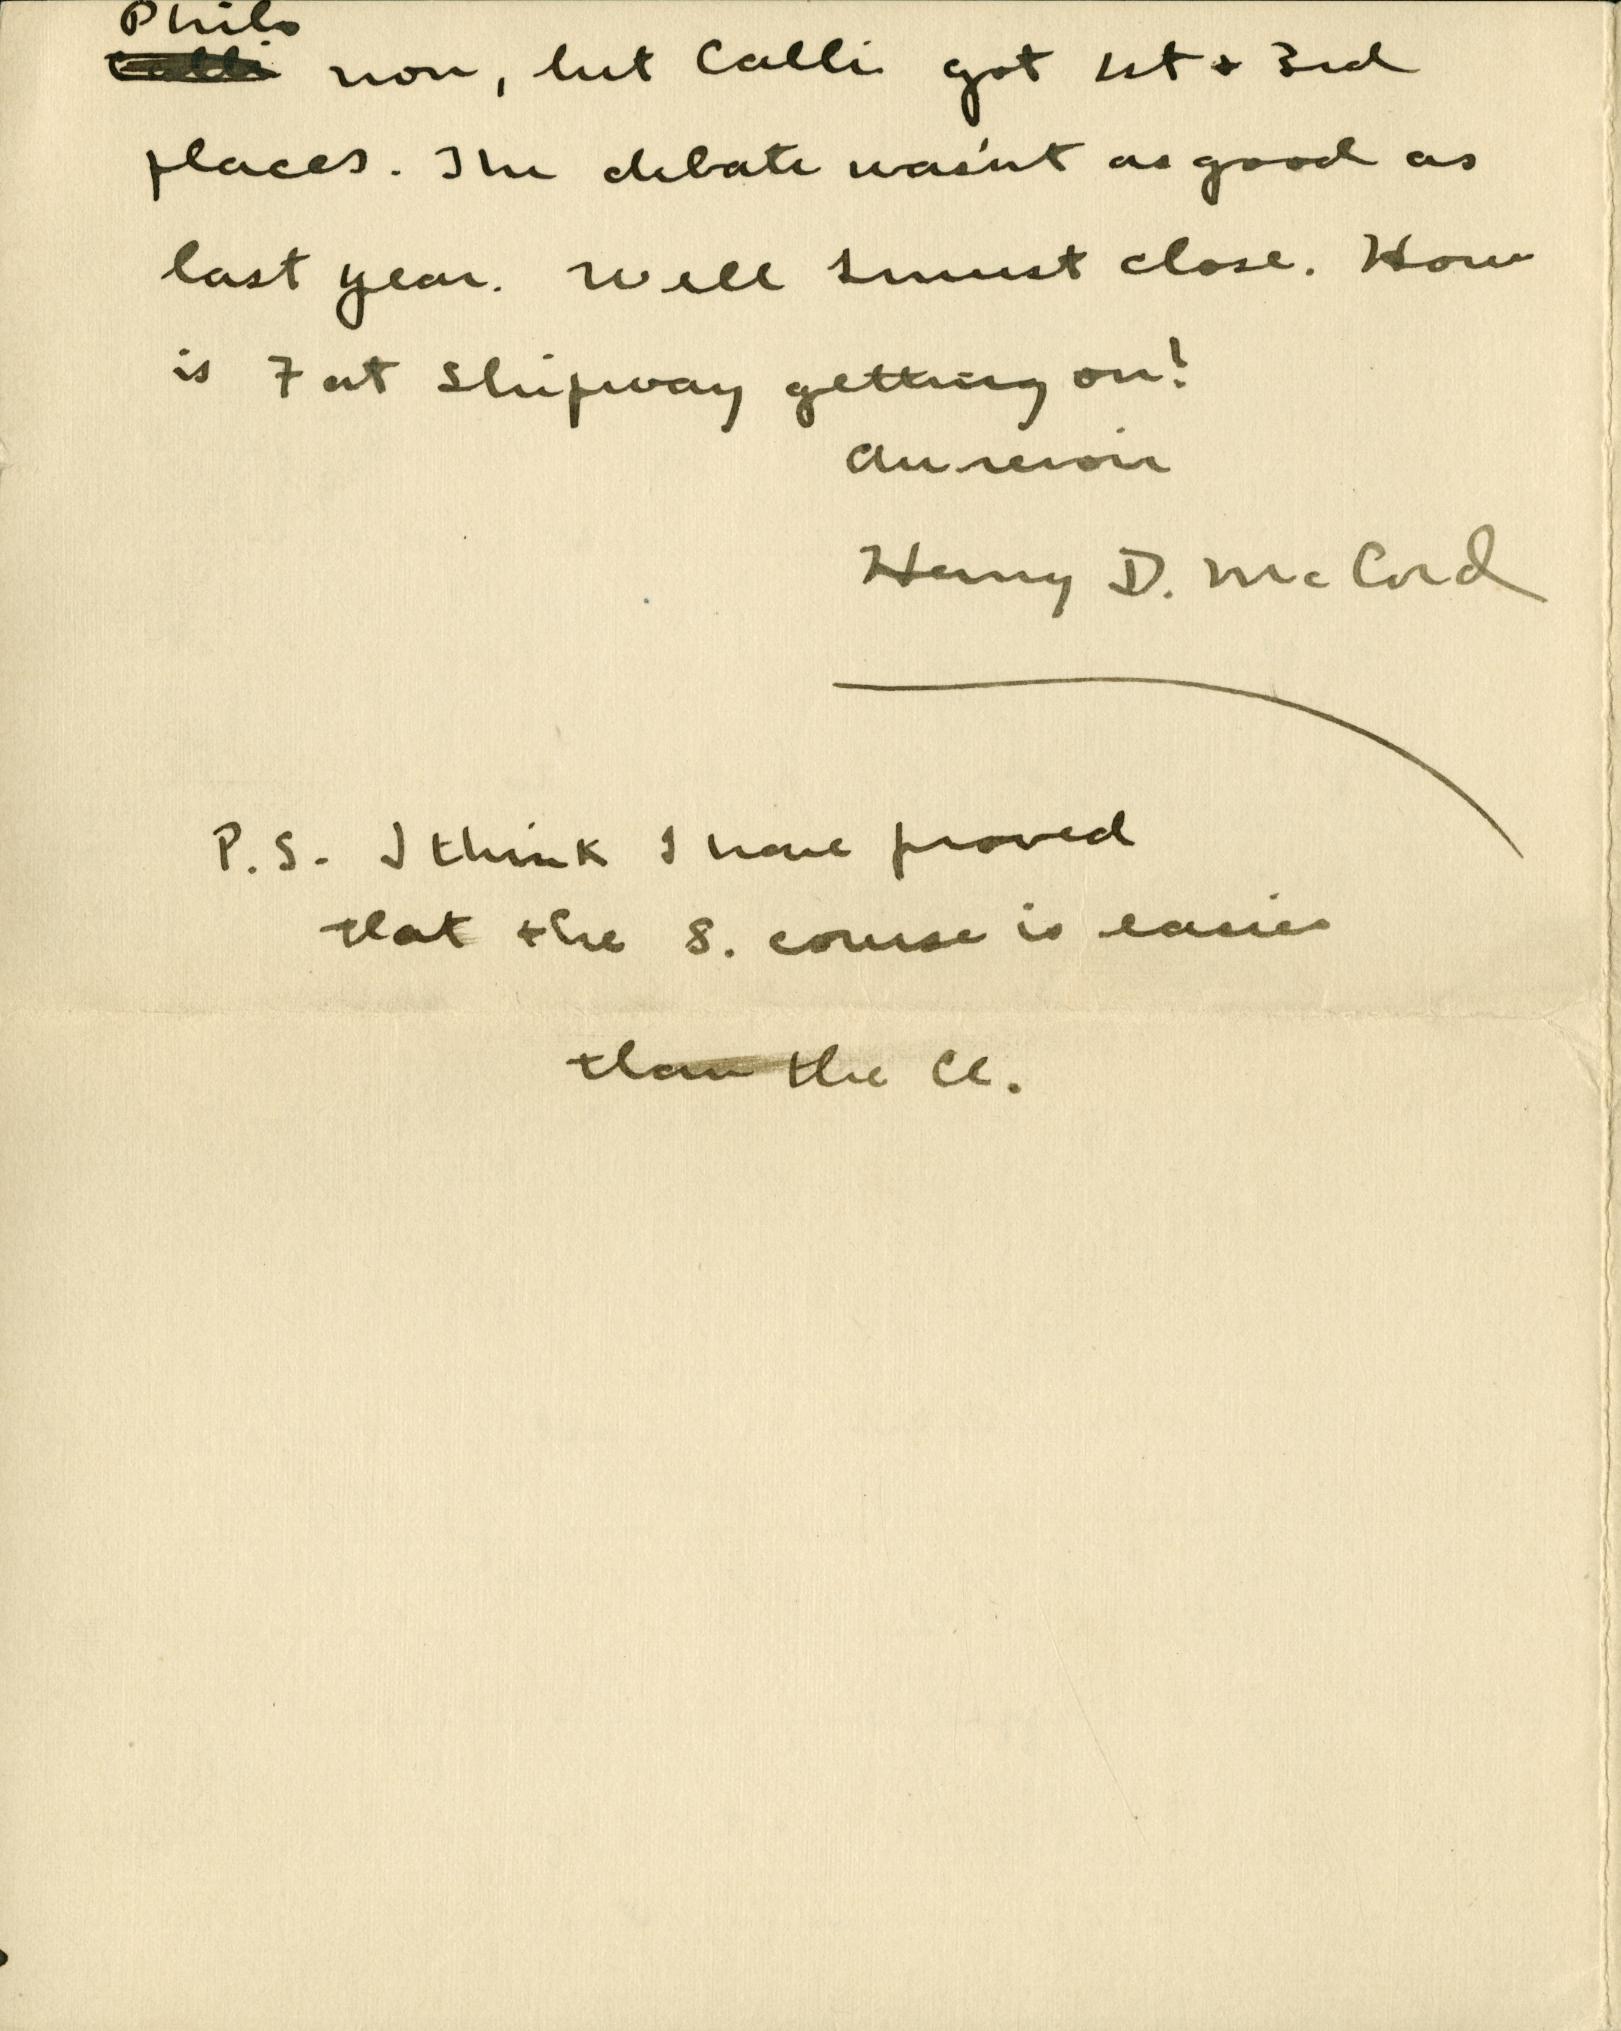 Philo
Calli won, but Calli got 1st & 3rd
places. The debate was'nt as good as
last year. Well I must close. How
is Fat Shipway getting on?
Au revoir
Henry D. McCord
P.S. I think I have proved
that the S. course is easier
than the Cl.